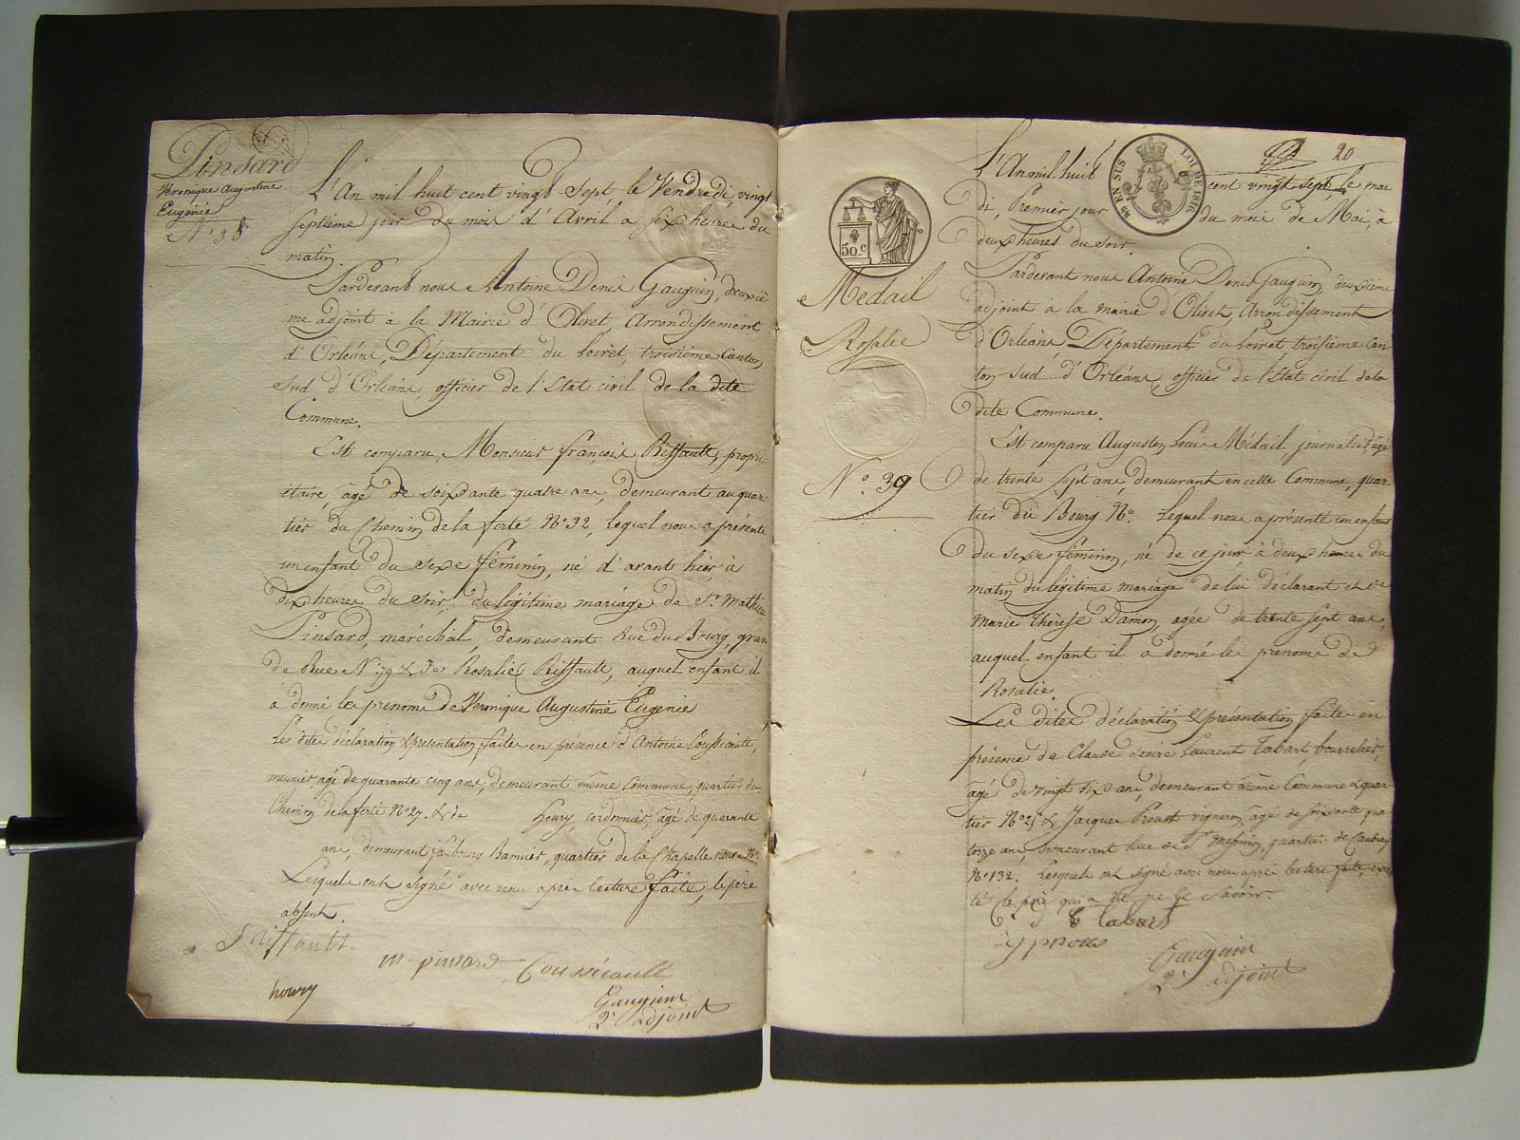 Pinsard
Véronique Augustine
Eugénie
N° 38
L'An mil huit cent vingt sept, le Vendredi, vingt
septieme jour du mois d'Avril a six heures du
matin.
Pardevant nous Antoine Denis Gauguin, deuxiè
me adjoint à la Mairie d'Olivet, Arrondissement
d'Orléans, Département du Loiret, troisième Canton,
Sud d'Orléans, officier de l'Etat civil de la dite
Commune.
Est comparu, Monsieur françois Riffault, propri
étaire, agé de soixante quatre ans, demeurant au quar
tier du Chemin de la ferté N° 32, lequel nous a présenté
un enfant du sexe féminin, né d'avant hier à
dix heures du soir, du légitime mariage de Sr. Mathieu
Pinsard, maréchal, demeurant Rue du Bourg, gran
de Rue N° 79 & de Rosalie Riffault, auquel enfant il
a donné les prénoms de Véronique Augustine Eugenie
Les dites déclaration & présentation faites en présence d'Antoine Coussicault,
meunier agé de quarante cinq ans, demeurant même commune, quartier du
Chemin de la ferté N° 27. & de Houry, cordonnier, agé de quarante
ans, demeurant faubourg Bannier, quartier de la Chapelle
Lesquels ont signé avec nous après lecture faite, le père
absent.
f Riffault.
m pinsard Coussicault
houry
Gauguin
2e adjoint
20
50 c
EN SUS
LOI DE 1816
L'An mil huit cent vingt sept, le mar
di, Premier jour du mois de Mai, à
deux heures du soir.
Pardevant nous Antoine Denis Gauguin, deuxième
adjoint à la mairie d'Olivet, Arrondissement
d'Orléans Département du Loiret troisième Can
ton sud d'Orléans, officier de l'Etat civil de la
dite Commune.
Medail
Rosalie
N° 39
Est comparu Augustin Louis Médail journalier, agé
de trente sept ans, demeurant en cette Commune, quar
tier du Bourg N° Lequel nous a présenté un enfant
du sexe féminin, né de ce jour à deux heures du
matin du légitime mariage de lui déclarant et de
Marie Thérèse Damon, agée de trente sept ans,
auquel enfant il a donné le prénom de
Rosalie.
Les dites déclaration & présentation faite en
présence de Claude Laurent Tabart, bourrelier,
âgé de vingt six ans, demeurant même Commune & quar
tier N° & Jacques Proust vigneron, agé de soixante qua
torze ans, demeurant Rue de St. Mesmin, quartier de
N° 132. Lesquels ont signé avec nous après lecture faite,
le père qui a dit ne le savoir.
Tabart
Gauguin
2e adjoint